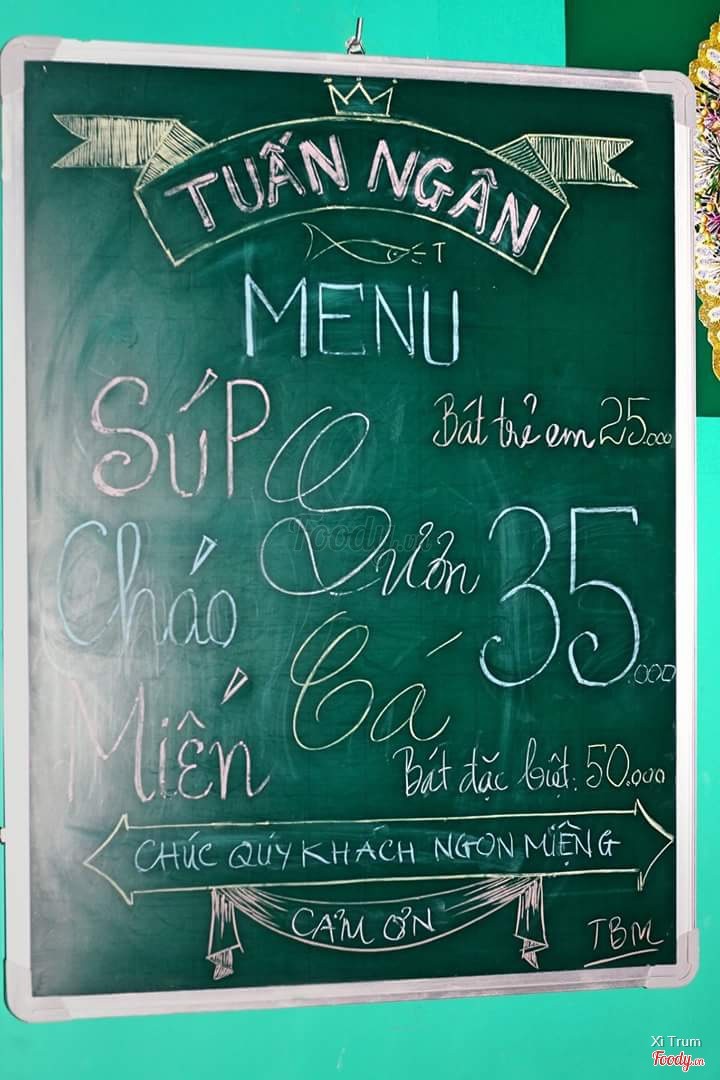 TUẤN NGÂN
T
MENU
SÚP
Bát trẻ em 25.000
Sườn
Cháo
35.000
Cá
Miến
Bát đặc biệt: 50.000
CHÚC QÚY KHÁCH NGON MIỆNG
CẢM ƠN
TBM
foody.vn
Xì Trum
Foody.vn